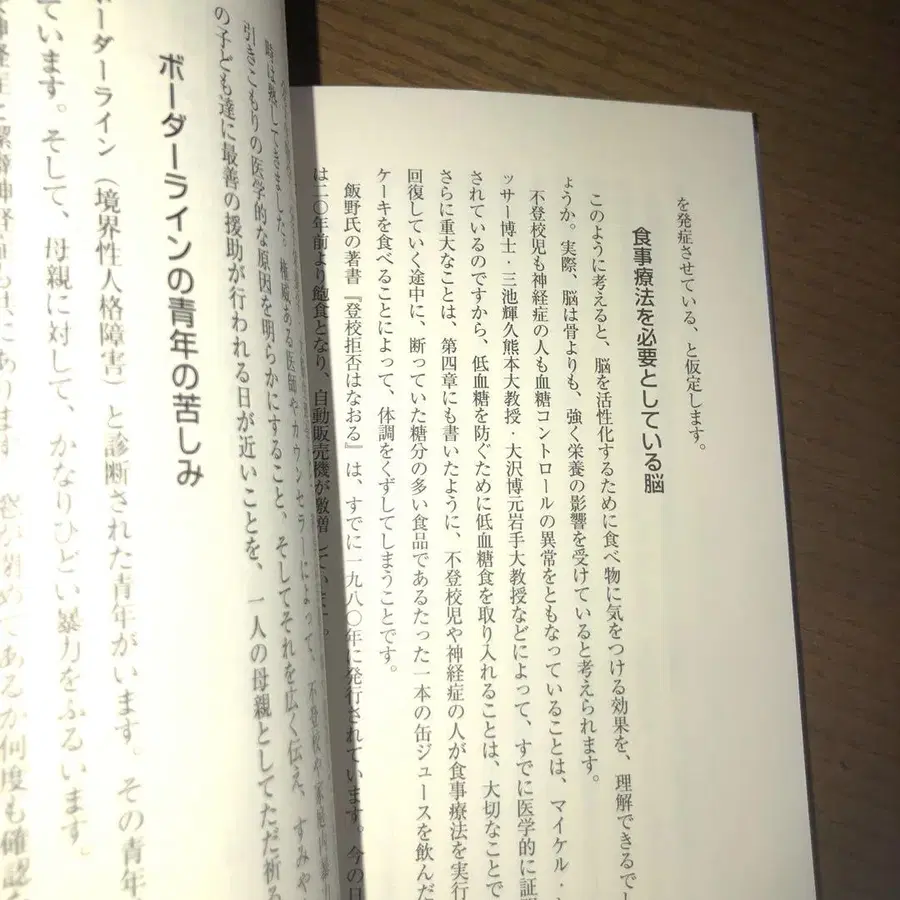 を発症させている、と仮定します。
食事療法を必要としている脳
このように考えると、脳を活性化するために食べ物に気をつける効果を、理解できるでし
ょうか。実際、脳は骨よりも、強く栄養の影響を受けていると考えられます。
不登校児も神経症の人も血糖コントロールの異常をともなっていることは、マイケル・
ッサー博士・三池輝久熊本大教授・大沢博元岩手大教授などによって、すでに医学的に証
されているのですから、低血糖を防ぐために低血糖食を取り入れることは、大切なことで
さらに重大なことは、第四章にも書いたように、不登校児や神経症の人が食事療法を実行
回復していく途中に、断っていた糖分の多い食品であるたった一本の缶ジュースを飲んだ
ケーキを食べることによって、体調をくずしてしまうことです。
飯野氏の著書『登校拒否はなおる』は、すでに一九八〇年に発行されています。今の日
は二〇年前より飽食となり、自動販売機が激増しています。
時は熟してきました。権威ある医師やカウンセラーによって、不登校や家庭内暴力
引きこもりの医学的な原因を明らかにすること、そしてそれを広く伝え、すみや
の子ども達に最善の援助が行われる日が近いことを、一人の母親としてただ祈る
ボーダーラインの青年の苦しみ
ボーダーライン（境界性人格障害）と診断された青年がいます。その青年
ています。そして、母親に対して、かなりひどい暴力をふるいます。